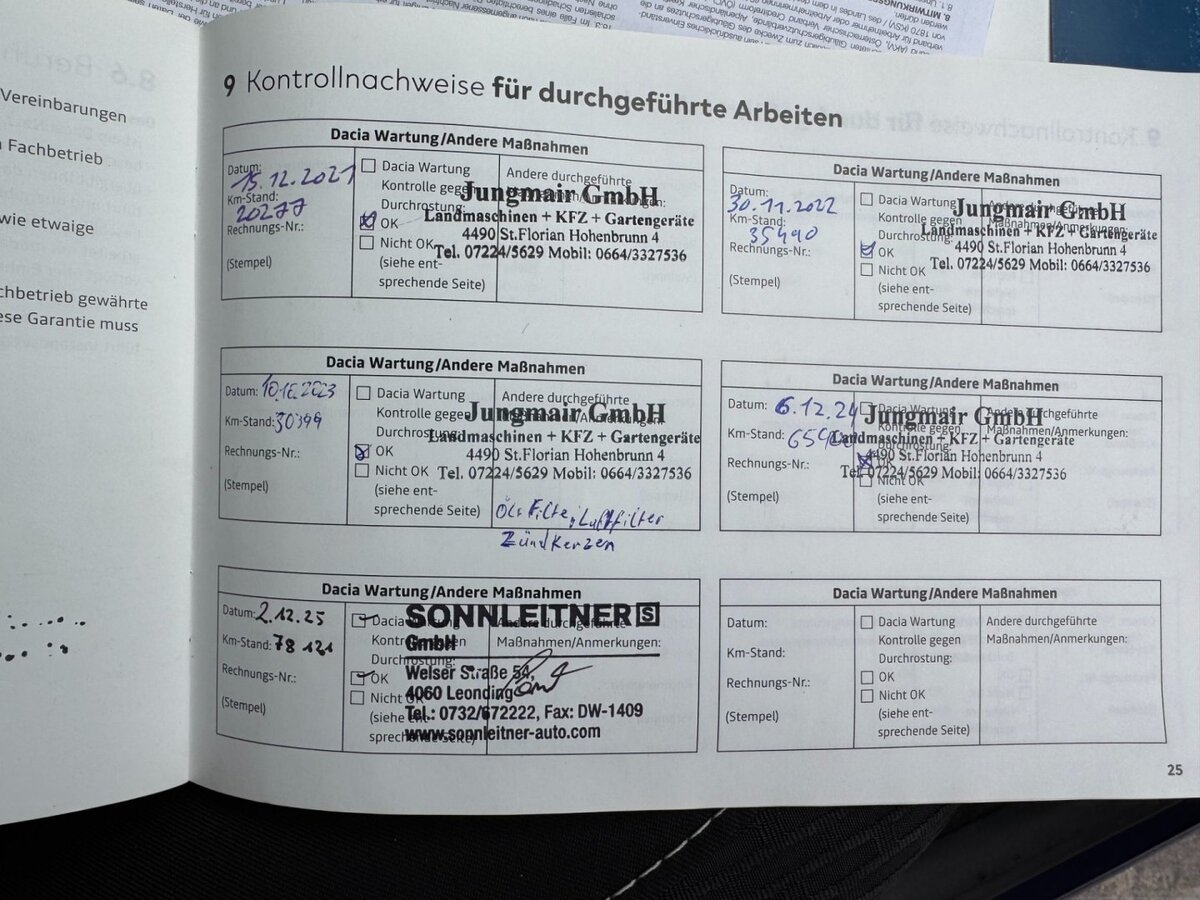 9 Kontrollnachweise für durchgeführte Arbeiten
Vereinbarungen
Fachbetrieb
wie etwaige
chbetrieb gewährte
ese Garantie muss
Dacia Wartung/Andere Maßnahmen
Datum: 15.12.2021
Km-Stand: 20277
Rechnungs-Nr.:
(Stempel)
Dacia Wartung
Kontrolle gegen
Durchrostung:
OK
Nicht OK
(siehe ent-
sprechende Seite)
Andere durchgeführte
Maßnahmen/Anmerkungen:
Jungmair GmbH
Landmaschinen + KFZ + Gartengeräte
4490 St.Florian Hohenbrunn 4
Tel. 07224/5629 Mobil: 0664/3327536
Dacia Wartung/Andere Maßnahmen
Datum: 30.11.2022
Km-Stand: 35490
Rechnungs-Nr.:
(Stempel)
Dacia Wartung
Kontrolle gegen
Durchrostung:
OK
Nicht OK
(siehe ent-
sprechende Seite)
Andere durchgeführte
Maßnahmen/Anmerkungen:
Jungmair GmbH
Landmaschinen + KFZ + Gartengeräte
4490 St.Florian Hohenbrunn 4
Tel. 07224/5629 Mobil: 0664/3327536
Dacia Wartung/Andere Maßnahmen
Datum: 10.10.2023
Km-Stand: 30399
Rechnungs-Nr.:
(Stempel)
Dacia Wartung
Kontrolle gegen
Durchrostung:
OK
Nicht OK
(siehe ent-
sprechende Seite)
Andere durchgeführte
Maßnahmen/Anmerkungen:
Jungmair GmbH
Landmaschinen + KFZ + Gartengeräte
4490 St.Florian Hohenbrunn 4
Tel. 07224/5629 Mobil: 0664/3327536
Luftfilter
Zündkerzen
Dacia Wartung/Andere Maßnahmen
Datum: 6.12.24
Km-Stand:
Rechnungs-Nr.:
(Stempel)
Dacia Wartung
Kontrolle gegen
Durchrostung:
OK
Nicht OK
(siehe ent-
sprechende Seite)
Andere durchgeführte
Maßnahmen/Anmerkungen:
Jungmair GmbH
Landmaschinen + KFZ + Gartengeräte
4490 St.Florian Hohenbrunn 4
Tel. 07224/5629 Mobil: 0664/3327536
Dacia Wartung/Andere Maßnahmen
Datum: 2.12.25
Km-Stand: 78 121
Rechnungs-Nr.:
(Stempel)
Dacia Wartung
Kontrolle gegen
Durchrostung:
OK
Nicht OK
(siehe ent-
sprechende Seite)
Andere durchgeführte
Maßnahmen/Anmerkungen:
SONNLEITNER S
GmbH
Welser Straße 54,
4060 Leonding
Tel.: 0732/672222, Fax: DW-1409
www.sonnleitner-auto.com
Dacia Wartung/Andere Maßnahmen
Datum:
Km-Stand:
Rechnungs-Nr.:
(Stempel)
Dacia Wartung
Kontrolle gegen
Durchrostung:
OK
Nicht OK
(siehe ent-
sprechende Seite)
Andere durchgeführte
Maßnahmen/Anmerkungen:
25